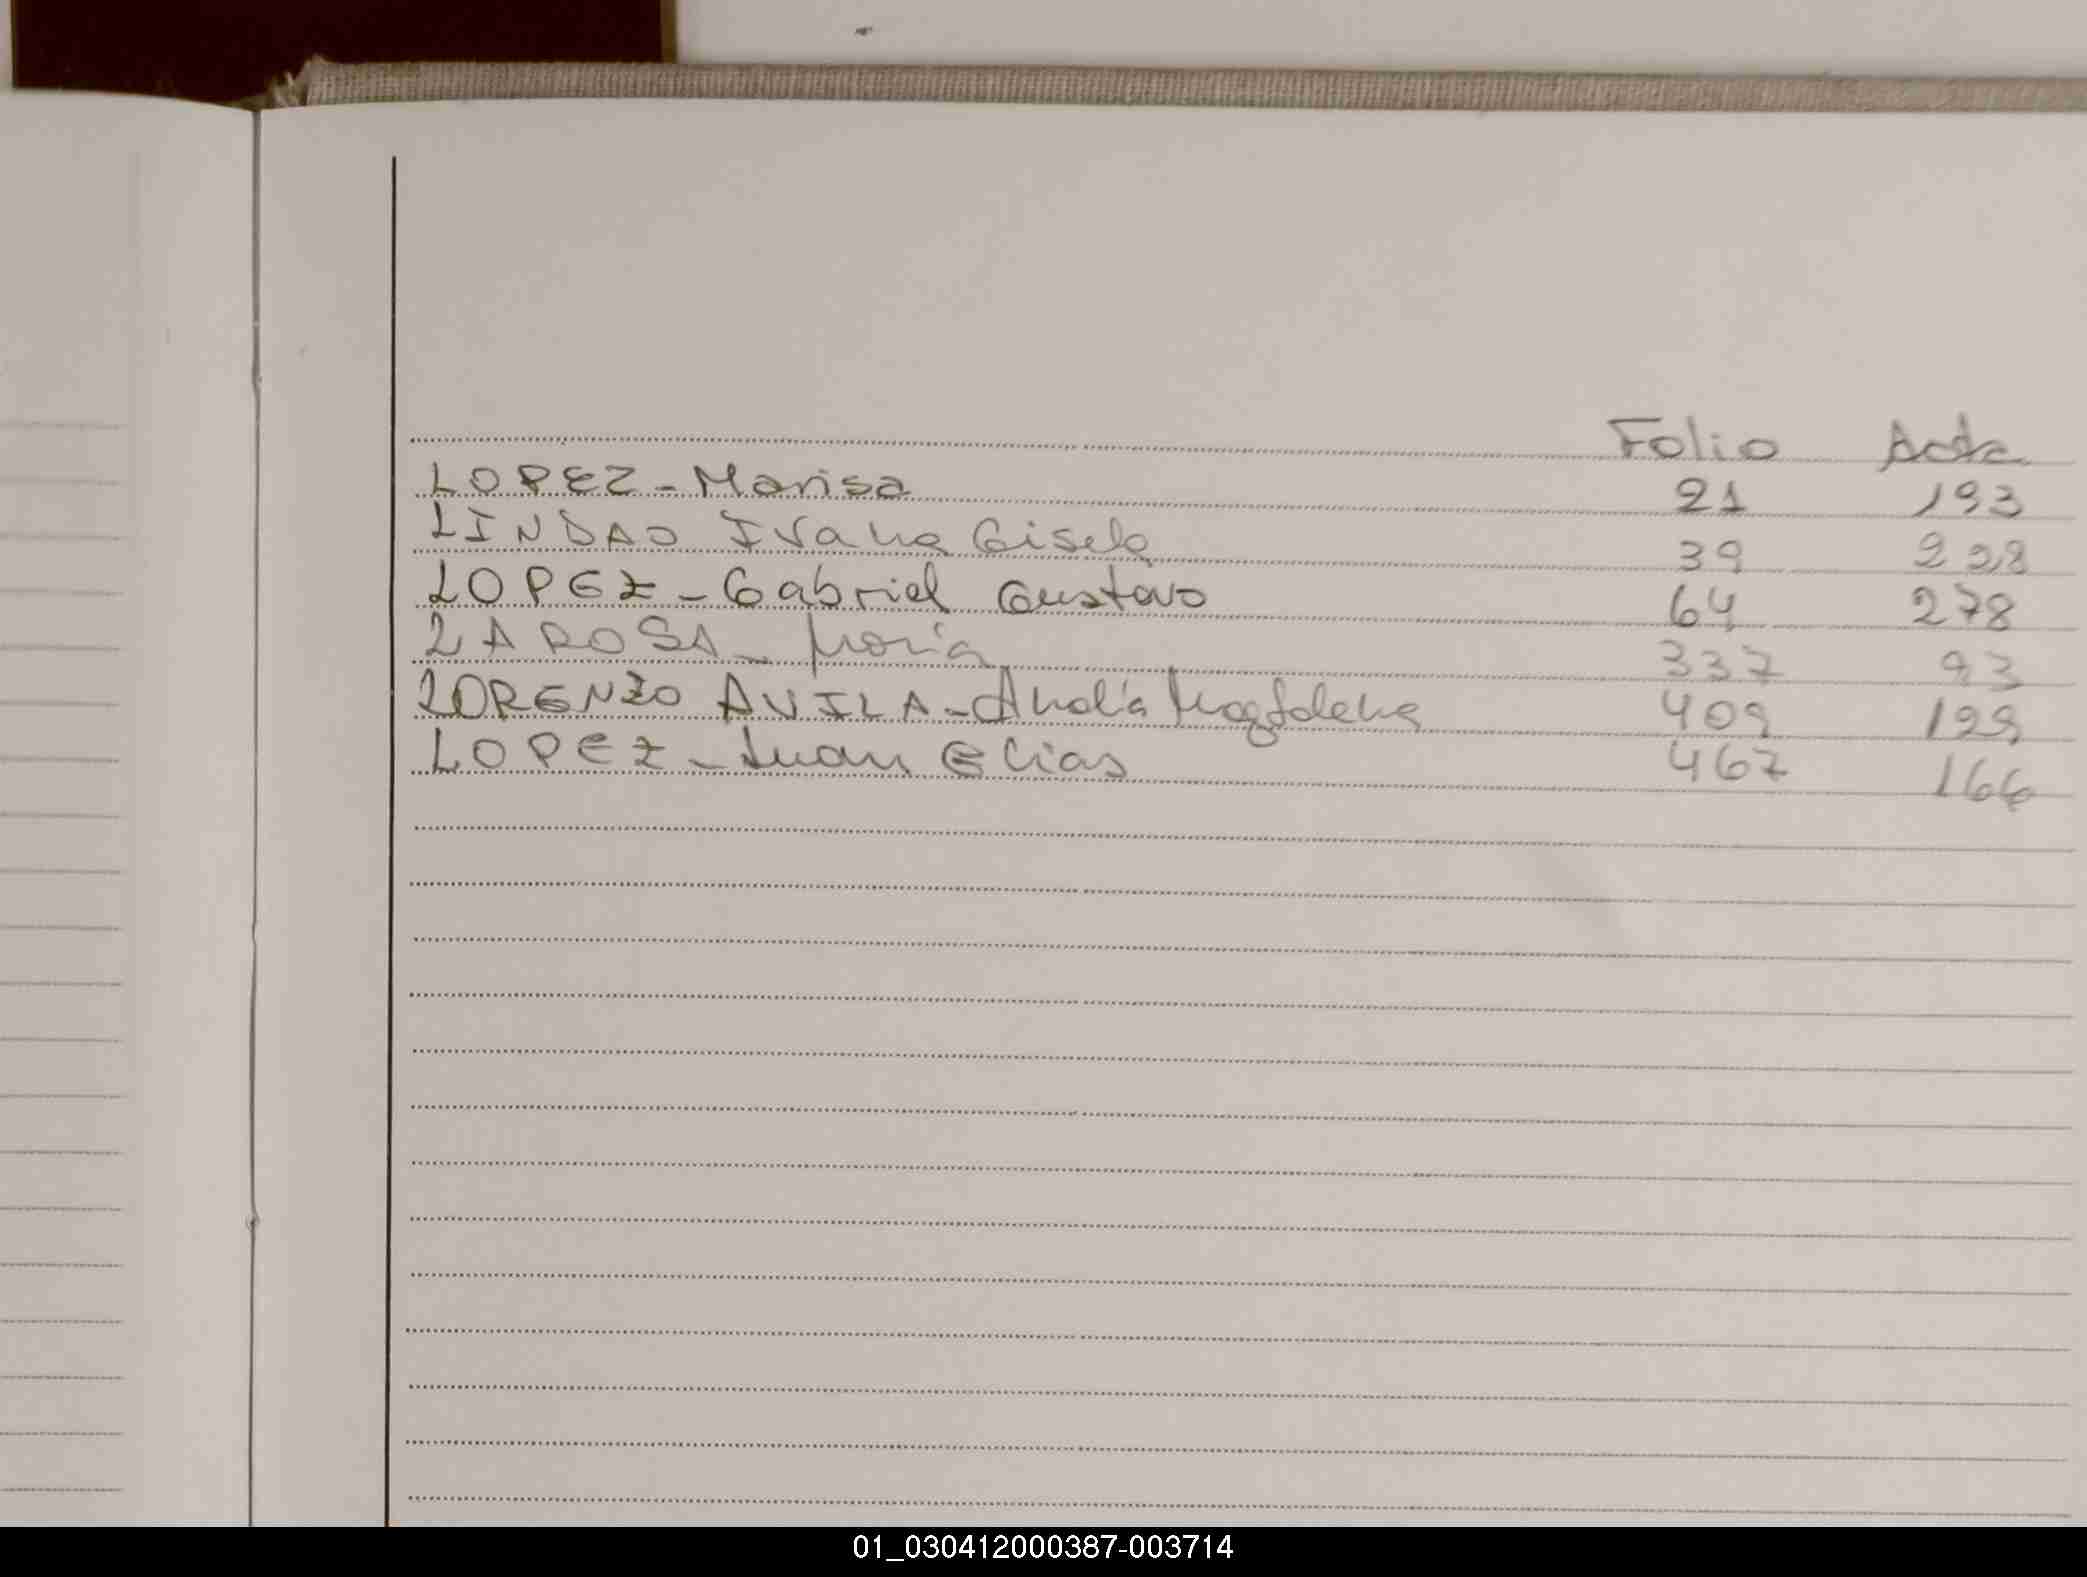 Folio Acta
LOPEZ - Marisa 21 193
LINDAO Ivana Gisela 39 228
LOPEZ - Gabriel Gustavo 64 278
LAROSA - María 337 93
LORENZO AVILA - Analía Magdalena 409 129
LOPEZ - Juan Elias 467 166
01_030412000387-003714